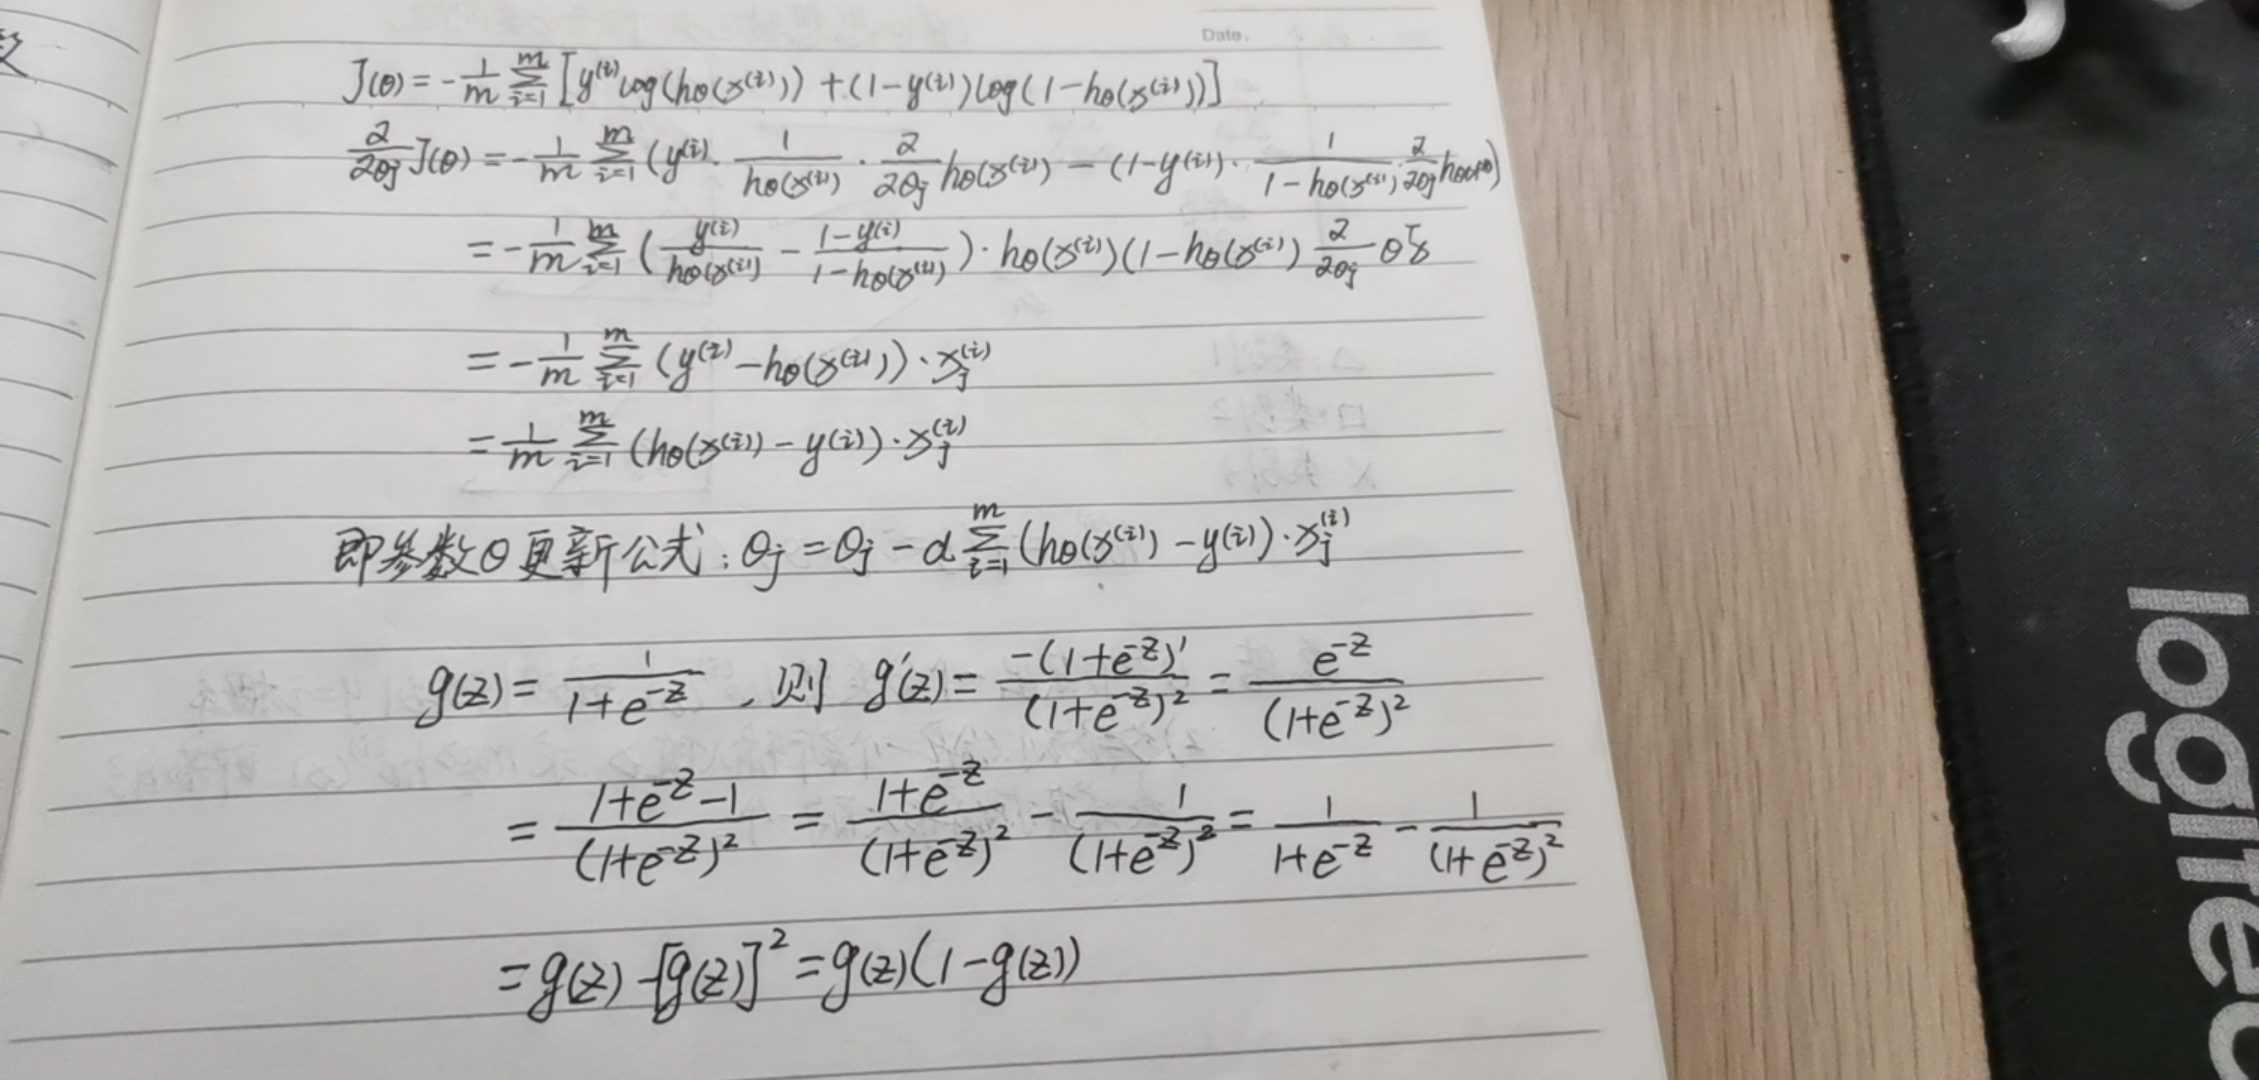 数
Date.
J(θ) = -1/m Σ_{i=1}^{m} [y^{(i)} log(hθ(x^{(i)})) + (1-y^{(i)}) log(1-hθ(x^{(i)}))]
∂/∂θj J(θ) = -1/m Σ_{i=1}^{m} (y^{(i)} · 1/hθ(x^{(i)}) · ∂/∂θj hθ(x^{(i)}) - (1-y^{(i)}) · 1/(1-hθ(x^{(i)})) · ∂/∂θj hθ(x^{(i)}))
= -1/m Σ_{i=1}^{m} (y^{(i)}/hθ(x^{(i)}) - (1-y^{(i)})/(1-hθ(x^{(i)}))) · hθ(x^{(i)})(1-hθ(x^{(i)}) ∂/∂θj θ^T x
= -1/m Σ_{i=1}^{m} (y^{(i)} - hθ(x^{(i)})) · x_j^{(i)}
= 1/m Σ_{i=1}^{m} (hθ(x^{(i)}) - y^{(i)}) · x_j^{(i)}
即参数θ更新公式：θj = θj - α Σ_{i=1}^{m} (hθ(x^{(i)}) - y^{(i)}) · x_j^{(i)}
g(z) = 1/(1+e^{-z})，则 g'(z) = -(1+e^{-z})'/(1+e^{-z})^2 = e^{-z}/(1+e^{-z})^2
= (1+e^{-z}-1)/(1+e^{-z})^2 = (1+e^{-z})/(1+e^{-z})^2 - 1/(1+e^{-z})^2 = 1/(1+e^{-z}) - 1/(1+e^{-z})^2
= g(z) - [g(z)]^2 = g(z)(1-g(z))